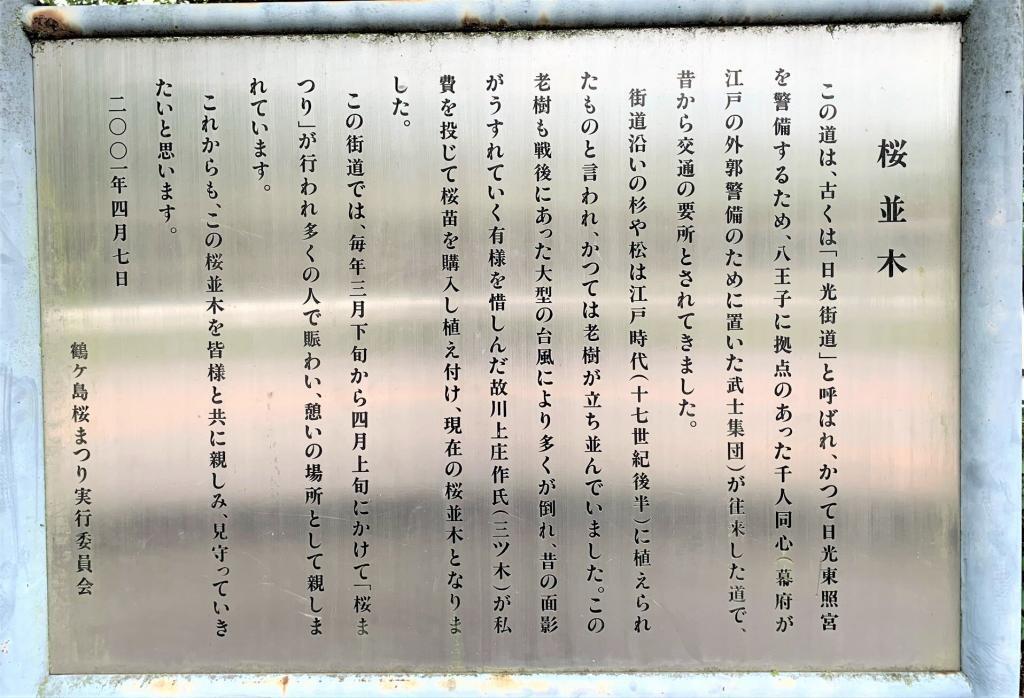 桜並木
この道は、古くは「日光街道」と呼ばれ、かつて日光東照宮
を警備するため、八王子に拠点のあった千人同心(幕府が
江戸の外郭警備のために置いた武士集団)が往来した道で、
昔から交通の要所とされてきました。
街道沿いの杉や松は江戸時代(十七世紀後半)に植えられ
たものと言われ、かつては老樹が立ち並んでいました。この
老樹も戦後にあった大型の台風により多くが倒れ、昔の面影
がうすれていく有様を惜しんだ故川上庄作氏(三ツ木)が私
費を投じて桜苗を購入し植え付け、現在の桜並木となりま
した。
この街道では、毎年三月下旬から四月上旬にかけて「桜ま
つり」が行われ多くの人で賑わい、憩いの場所として親しま
れています。
これからも、この桜並木を皆様と共に親しみ、見守っていき
たいと思います。
二〇〇一年四月七日
鶴ケ島桜まつり実行委員会